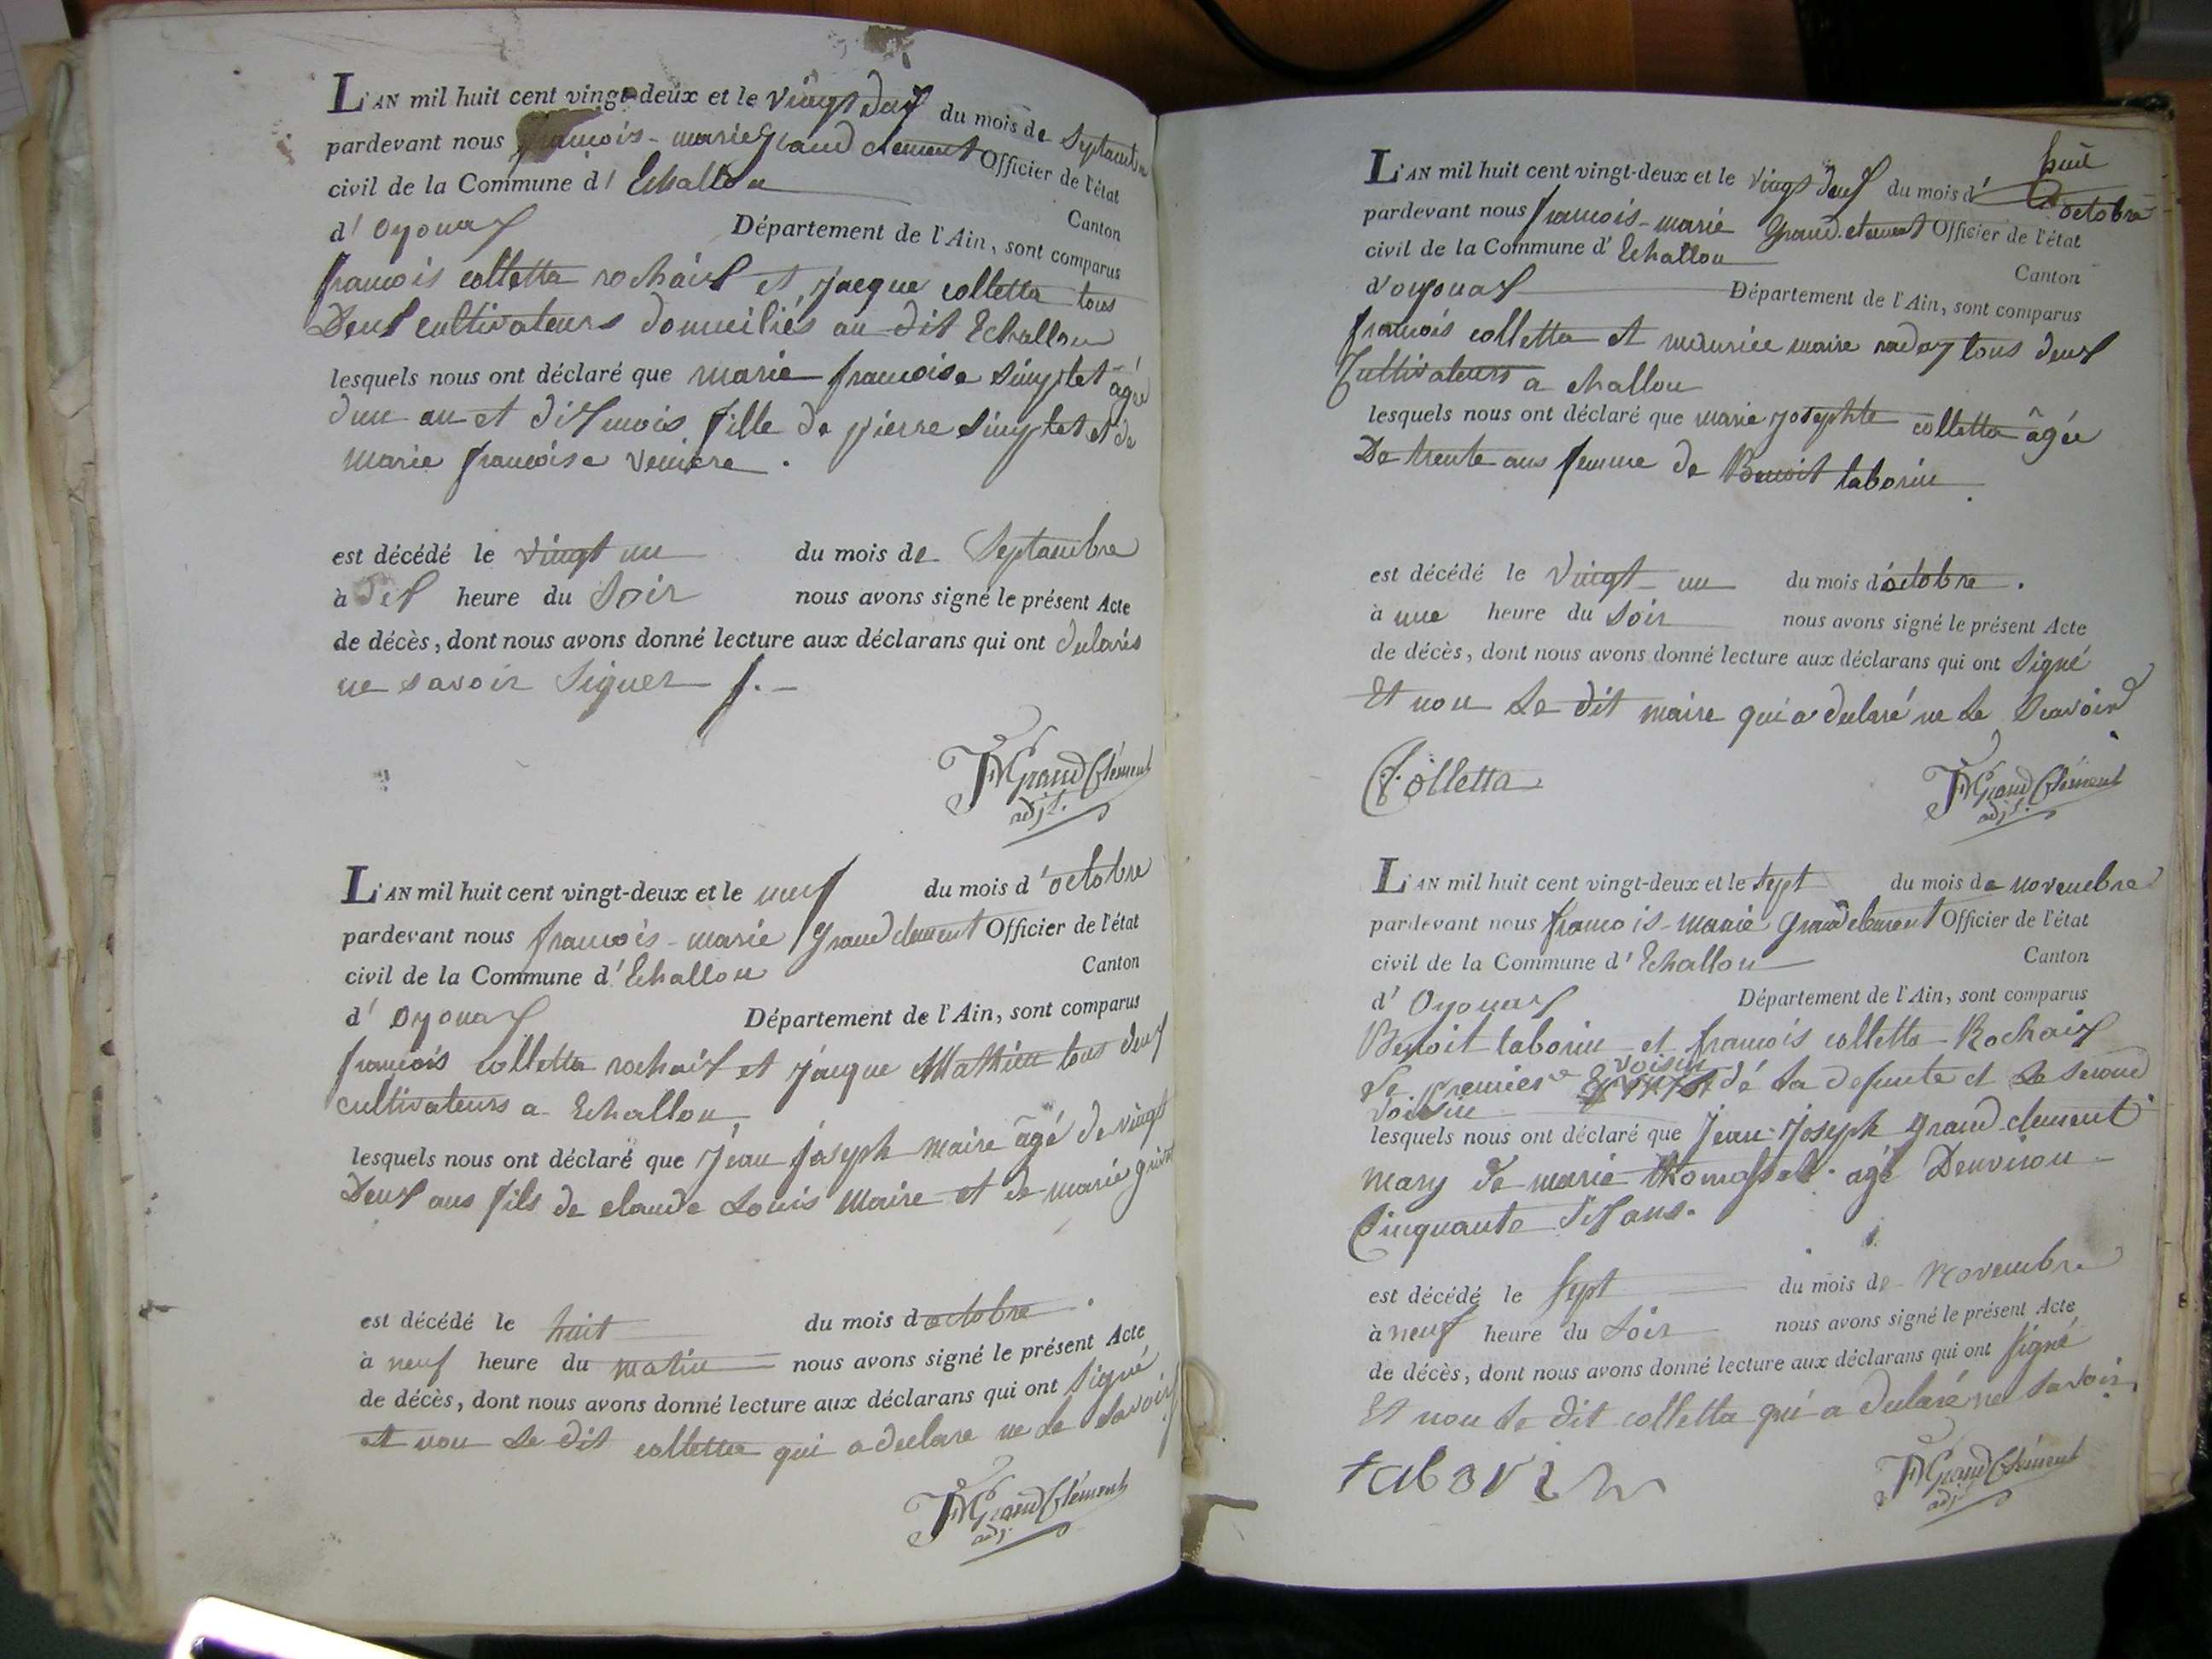 L'AN mil huit cent vingt-deux et le vingt deux du mois de Septambre
pardevant nous francois-marie Grand clement Officier de l'état
civil de la Commune d' Echallon Canton
d' Oyonax Département de l'Ain, sont comparus
francois colletta rochaix et jacque colletta tous
Deux cultivateurs domiciliés au dit Echallon
lesquels nous ont déclaré que marie francoise Simplet âgée
dun an et dix mois fille de pierre Simplet et de
marie francoise
est décédé le vingt un du mois de Septambre
à dix heure du Soir nous avons signé le présent Acte
de décès, dont nous avons donné lecture aux déclarans qui ont declarés
ne savoir Signer
FMGrandClément
adjt.
L'AN mil huit cent vingt-deux et le neuf du mois d'octobre
pardevant nous francois-marie Grand clement Officier de l'état
civil de la Commune d'Echallon Canton
d' Oyonax Département de l'Ain, sont comparus
francois colletta rochaix et jacque Mathieu tous deux
cultivateurs a Echallon,
lesquels nous ont déclaré que Jean joseph maire âgé de vingt
Deux ans fils de claude Louis Maire et de marie
est décédé le huit du mois doctobre
à neuf heure du matin nous avons signé le présent Acte
de décès, dont nous avons donné lecture aux déclarans qui ont Signé
et non Le dit colletta qui a declare ne Le Savoir
FMGrandClément
adj.
huit
L'AN mil huit cent vingt-deux et le vingt deux du mois d' octobre
pardevant nous francois-marie Grand clement Officier de l'état
civil de la Commune d' Echallon Canton
d'oyonax Département de l'Ain, sont comparus
francois colletta et maurice maire tous deux
Cultivateurs a challon
lesquels nous ont déclaré que marie josephte colletta âgée
De trente ans femme de Benoit taborin
est décédé le vingt un du mois d'octobre.
à une heure du Soir nous avons signé le présent Acte
de décès, dont nous avons donné lecture aux déclarans qui ont Signé
Et non Le dit maire qui a declaré ne Le Scavoir
Colletta
FMGrandClément
adjt.
L'AN mil huit cent vingt-deux et le Sept du mois de novembre
pardevant nous francois-marie grandclement Officier de l'état
civil de la Commune d' Echallon Canton
d' Oyonax Département de l'Ain, sont comparus
Benoit taborin et francois colletta Rochaix
voisin
Le premiere dé La defunte et Le Second
voisin
lesquels nous ont déclaré que Jean-Joseph Grand-clement
mary de marie agé Denviron
Cinquante dix ans.
est décédé le Sept du mois de Novembre
à neuf heure du Soir nous avons signé le présent Acte
de décès, dont nous avons donné lecture aux déclarans qui ont Signé
Et non Le dit colletta qui a declaré ne Savoir
taborin
FMGrandClément
adjt.